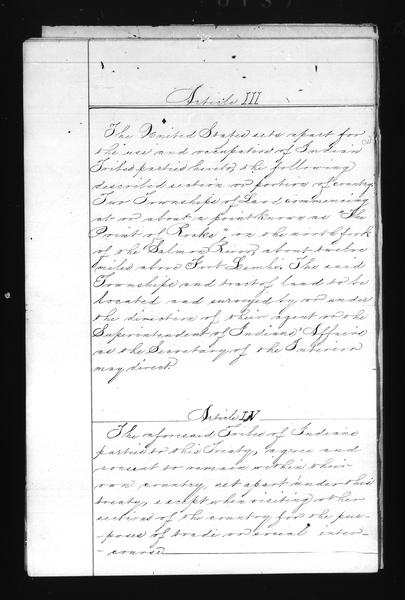 Article III
The United States sets apart for
the use and occupation of Indian
Tribes parties hereto, the following
described section or portion of country
Two Townships of Land commencing
at or about a point known as "The
Point of Rocks", on the north fork
of the Salmon River, about twelve
miles above Fort Lemhi. The said
Townships and tract of land to be
located and surveyed by or under
the direction of their agent or the
Superintendent of Indians Affairs
as the Secretary of the Interior
may direct.
Article IV
The aforesaid Tribes of Indians
parties to this Treaty, agree and
consent to remain within their
own country, set apart under this
treaty, except when visiting other
sections of the country for the pur-
-poses of trade or social inter-
-course.